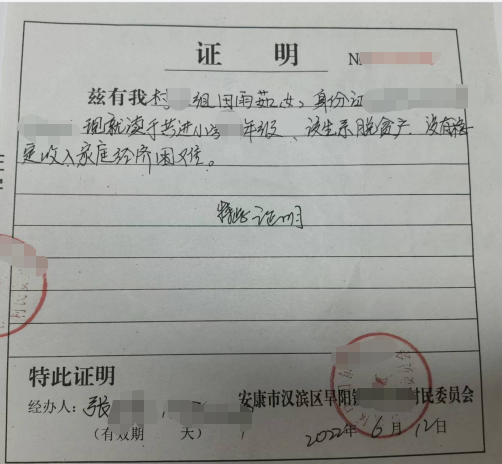 证 明
N
兹有我村 组田雨茹,女,身份证
现就读于共进小学 年级、该生系脱贫户,没有稳
定收入家庭经济困难。
特此证明
特此证明
经办人:张
安康市汉滨区早阳镇 村民委员会
(有效期 天)
2022年6月12日